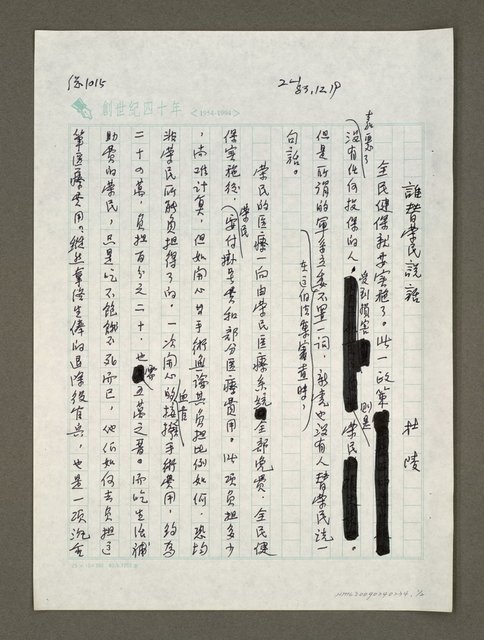 源1015
83.12.19
創世紀四十年 <1954-1994>
誰替榮民說話 杜陵
全民健保就要實施了。此一政策
嘉惠了
沒有任何投保的人,受到損害則是榮民。
但是所謂的軍系立委不置一詞,新黨也沒有人替榮民說一
在這個法案審查時,
句話。
榮民的醫療一向由榮民醫療系統全部免費,全民健
保實施後,榮民要付掛號費和部分醫療費用。此項負擔多少
,尚難計算,但如開心等手術通論其負擔比例如何,恐均
非榮民所能負擔得了的。一次開心血管的搭撥手術費用,約為
二十多萬,負擔百分之二十,也需五萬之普。而吃生活補
助費的榮民,只是吃不飽餓不死而已,他們如何去負擔這
筆醫療費用?縱然拿終生俸的退除役官兵,也是一項沉重
HM62009020234,1/2